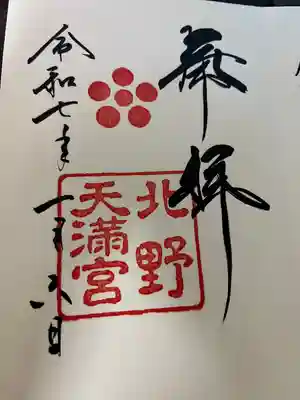 奉拝
北野
天満宮
令和七年一月六日